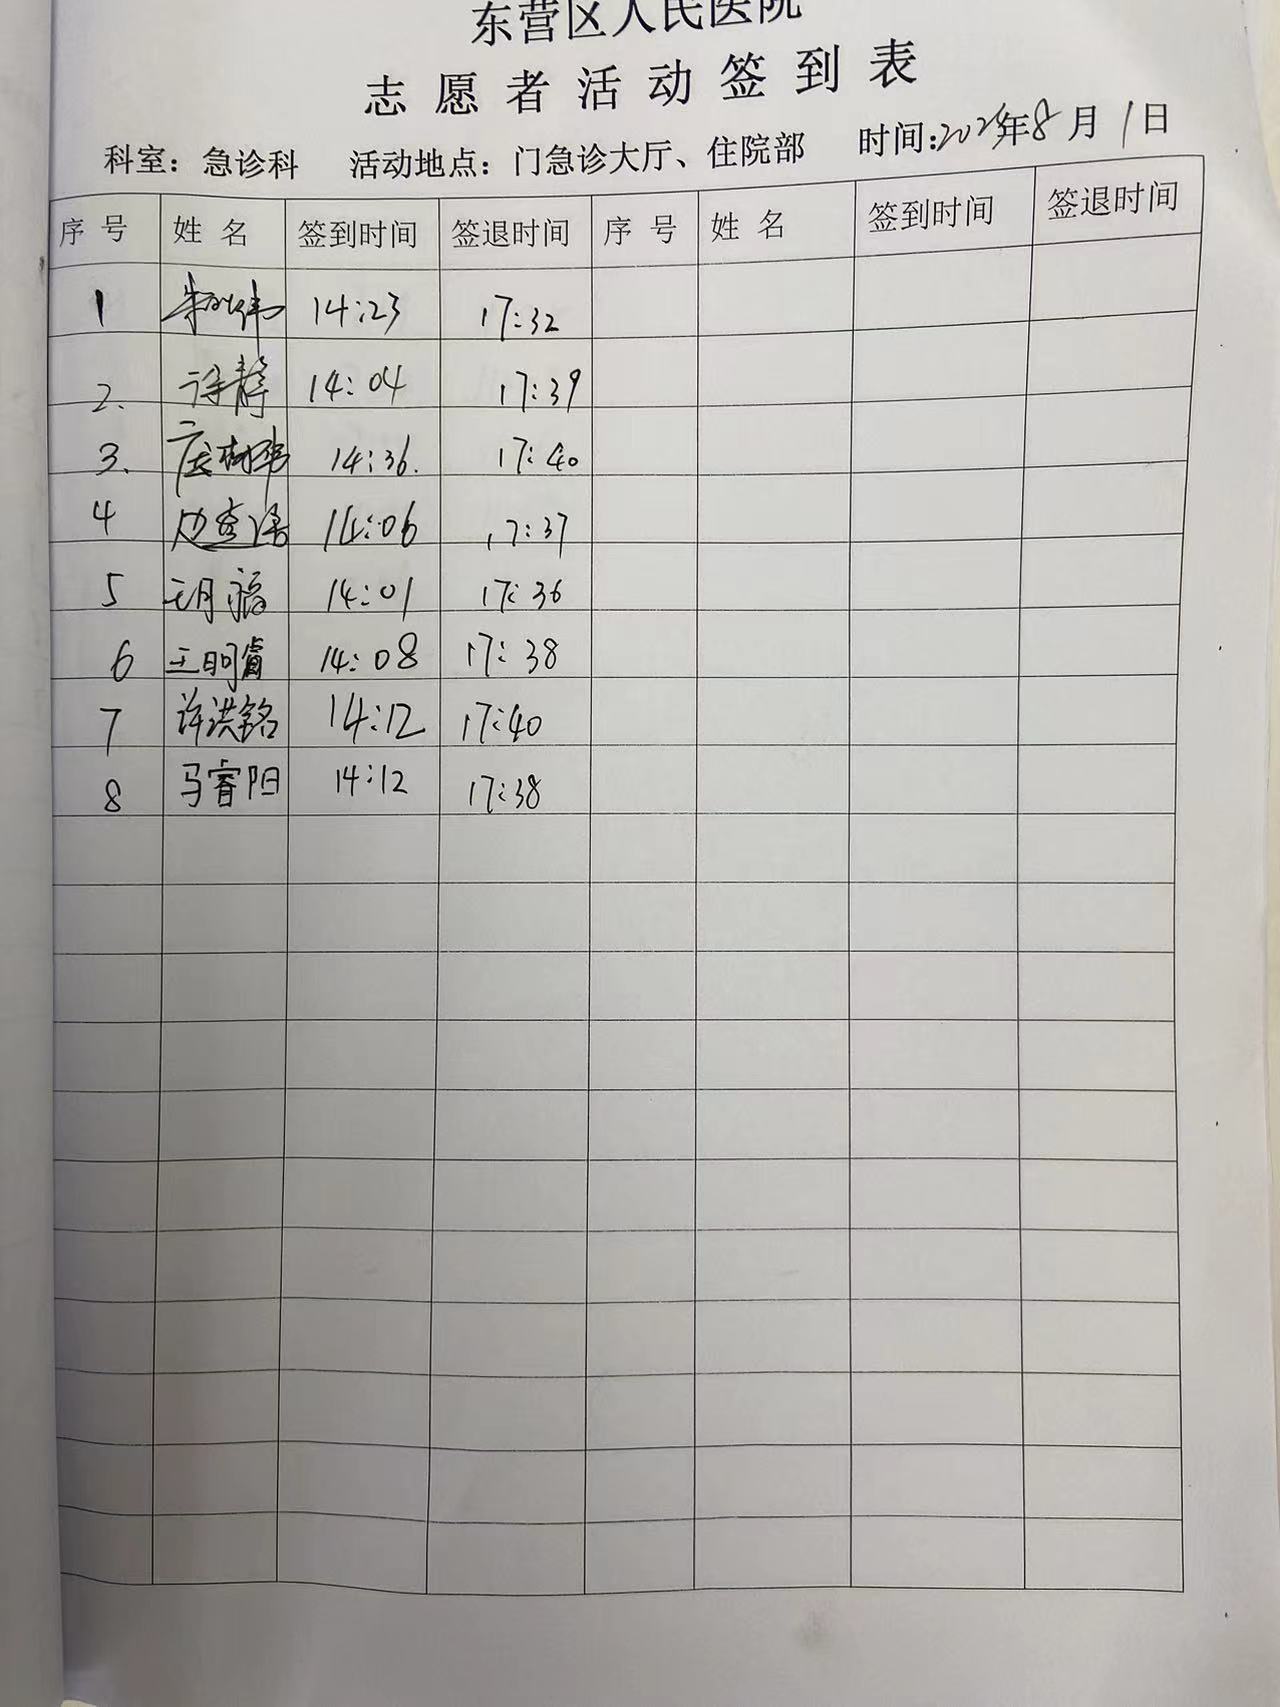 东营区人民医院
志愿者活动签到表
科室：急诊科 活动地点：门急诊大厅、住院部 时间:2025年8月1日
序号 姓名 签到时间 签退时间 序号 姓名 签到时间 签退时间
1 14:23 17:32
2. 许静 14:04 17:39
3. 14:36. 17:40
4 14:06 17:37
5 王月福 14:01 17:36
6 王明睿 14:08 17:38
7 许洪铭 14:12 17:40
8 马睿阳 14:12 17:38